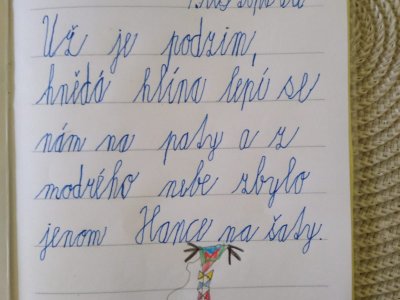 Už je podzim,
hnědá hlína lepí se
nám na paty a z
modrého nebe zbylo
jenom Hance na šaty.